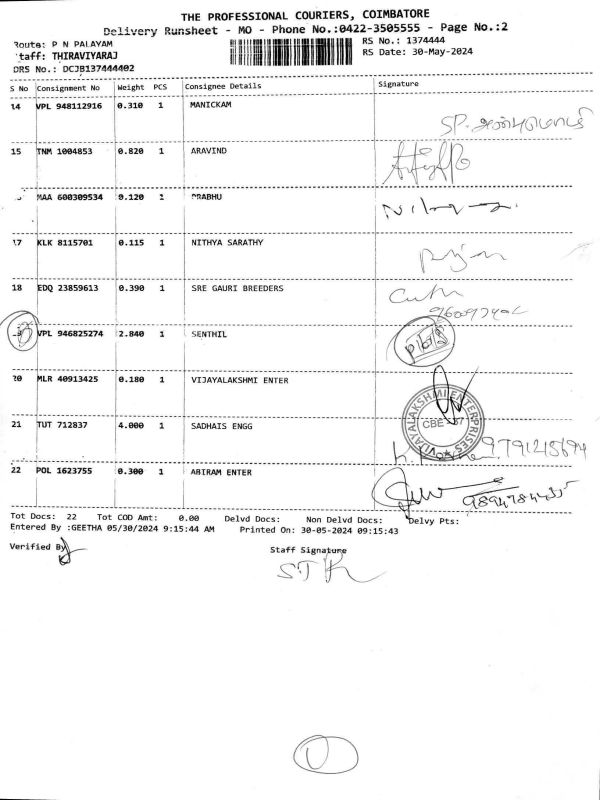 THE PROFESSIONAL COURIERS, COIMBATORE
Delivery Runsheet - MO - Phone No.:0422-3505555 - Page No.:2
Route: P N PALAYAM
Staff: THIRAVIYARAJ
DRS No.: DCJB137444402
RS No.: 1374444
RS Date: 30-May-2024
S No Consignment No Weight PCS Consignee Details Signature
14 VPL 948112916 0.310 1 MANICKAM
SP.
15 TNM 1004853 0.820 1 ARAVIND
MAA 600309534 0.120 1 PRABHU
17 KLK 8115701 0.115 1 NITHYA SARATHY
18 EDQ 23859613 0.390 1 SRE GAURI BREEDERS
VPL 946825274 2.840 1 SENTHIL
20 MLR 40913425 0.180 1 VIJAYALAKSHMI ENTER
VIJAYALAKSHMI ENTERPRISES
CBE
21 TUT 712837 4.000 1 SADHAIS ENGG
9791215694
22 POL 1623755 0.300 1 ABIRAM ENTER
Tot Docs: 22 Tot COD Amt: 0.00 Delvd Docs: Non Delvd Docs: Delvy Pts:
Entered By :GEETHA 05/30/2024 9:15:44 AM Printed On: 30-05-2024 09:15:43
Verified By
Staff Signature
STR